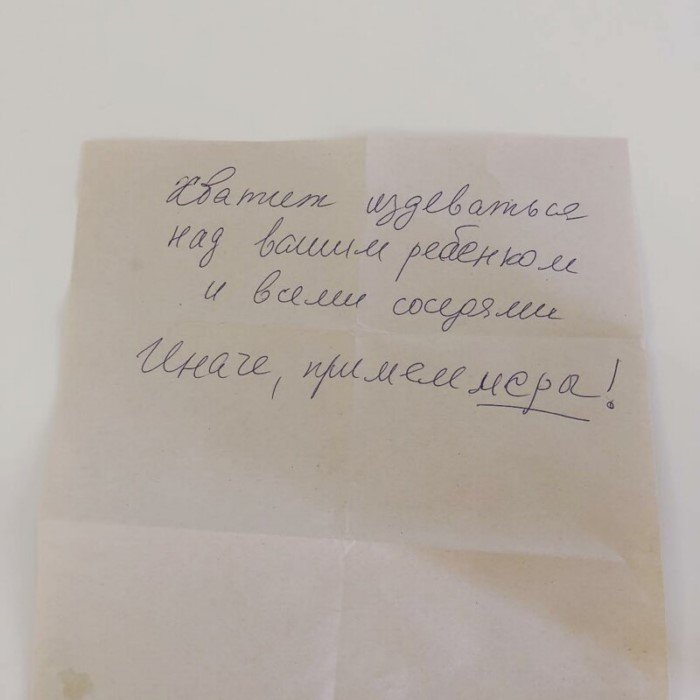 Хватит издеваться
над вашим ребёнком
и всеми соседями
Иначе, примем меры!